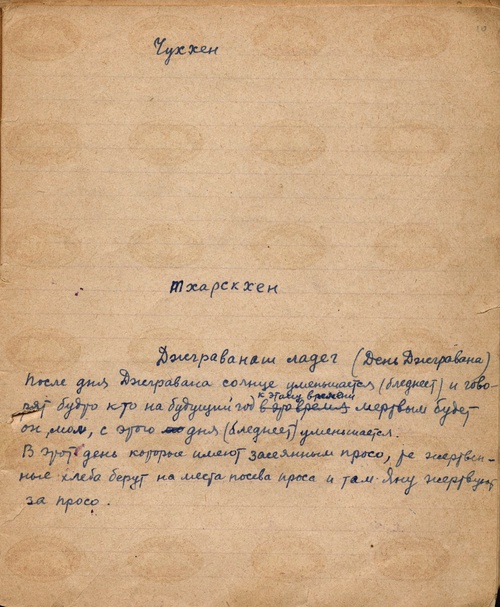 Чуххен
тхарскхен
Джграванаш ладег (День Джгравана)
После дня Джгравана солнце уменьшается (бледнеет) и гово-
рят будто кто на будущий год к этому времени в это время мертвым будет
он, мол, с этого дня (бледнеет) уменьшается.
В этот день которые имеют засеянным просо, те жертвен-
ные хлеба берут на места посева проса и там Яну жертвуют
за просо.